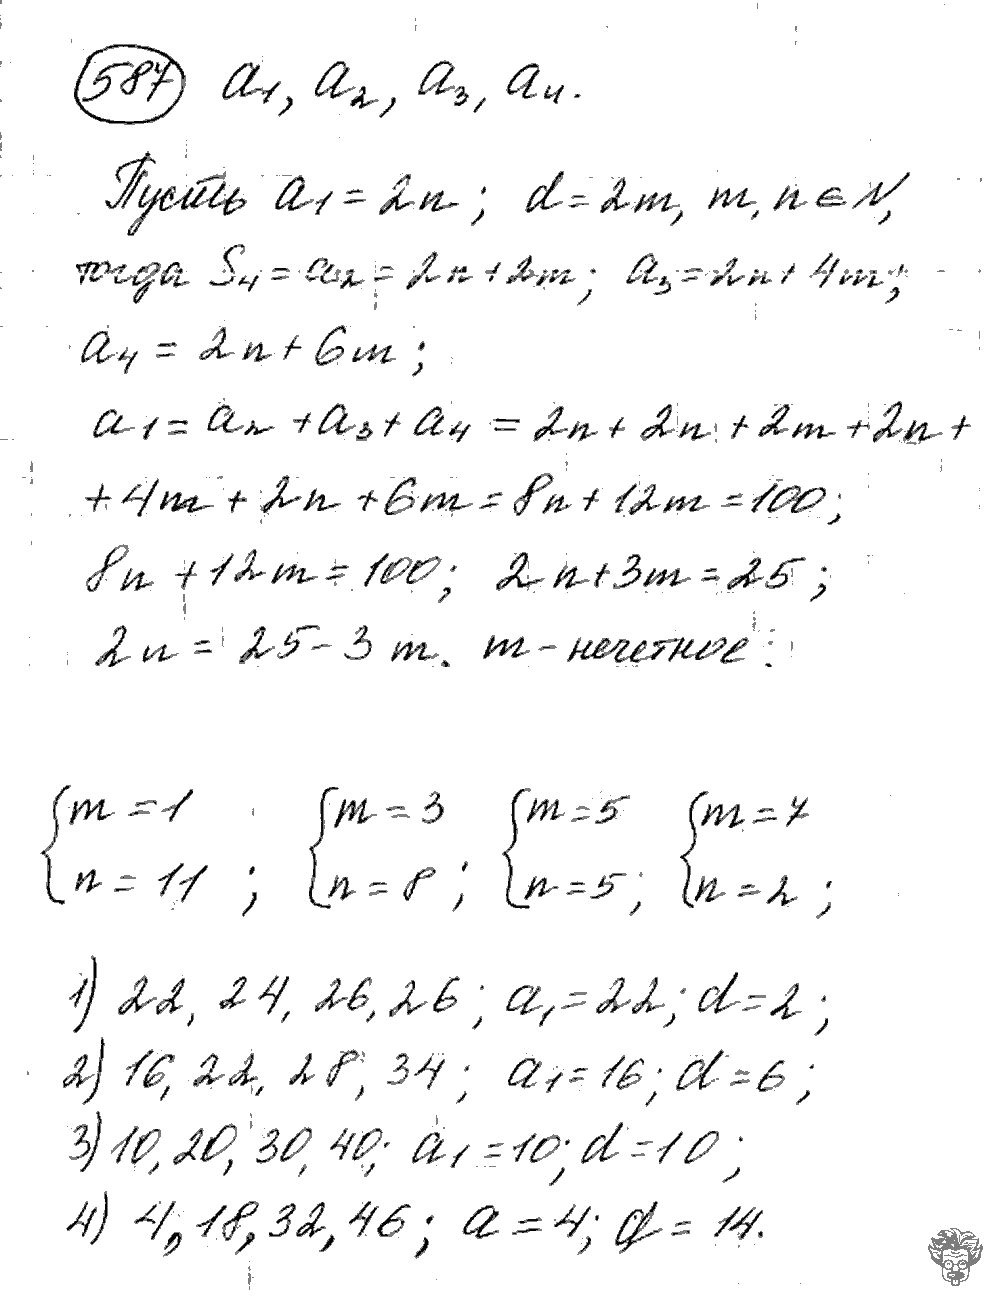 587 a₁, a₂, a₃, a₄.
Пусть a₁ = 2n; d = 2m, m, n ∈ N,
тогда S₄ = a₂ = 2n + 2m; a₃ = 2n + 4m;
a₄ = 2n + 6m;
a₁ = a₂ + a₃ + a₄ = 2n + 2n + 2m + 2n +
+ 4m + 2n + 6m = 8n + 12m = 100;
8n + 12m = 100; 2n + 3m = 25;
2n = 25 - 3m. m - нечетное:
{m = 1 {m = 3 {m = 5 {m = 7
n = 11; n = 8; n = 5; n = 2;
1) 22, 24, 26, 26; a₁ = 22; d = 2;
2) 16, 22, 28, 34; a₁ = 16; d = 6;
3) 10, 20, 30, 40; a₁ = 10; d = 10;
4) 4, 18, 32, 46; a = 4; d = 14.